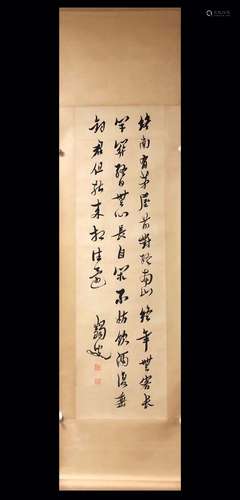 終南有茅屋前對終南山終年無客長
閉關終日無心長自閒不妨飲酒復垂
釣君但能來相往還